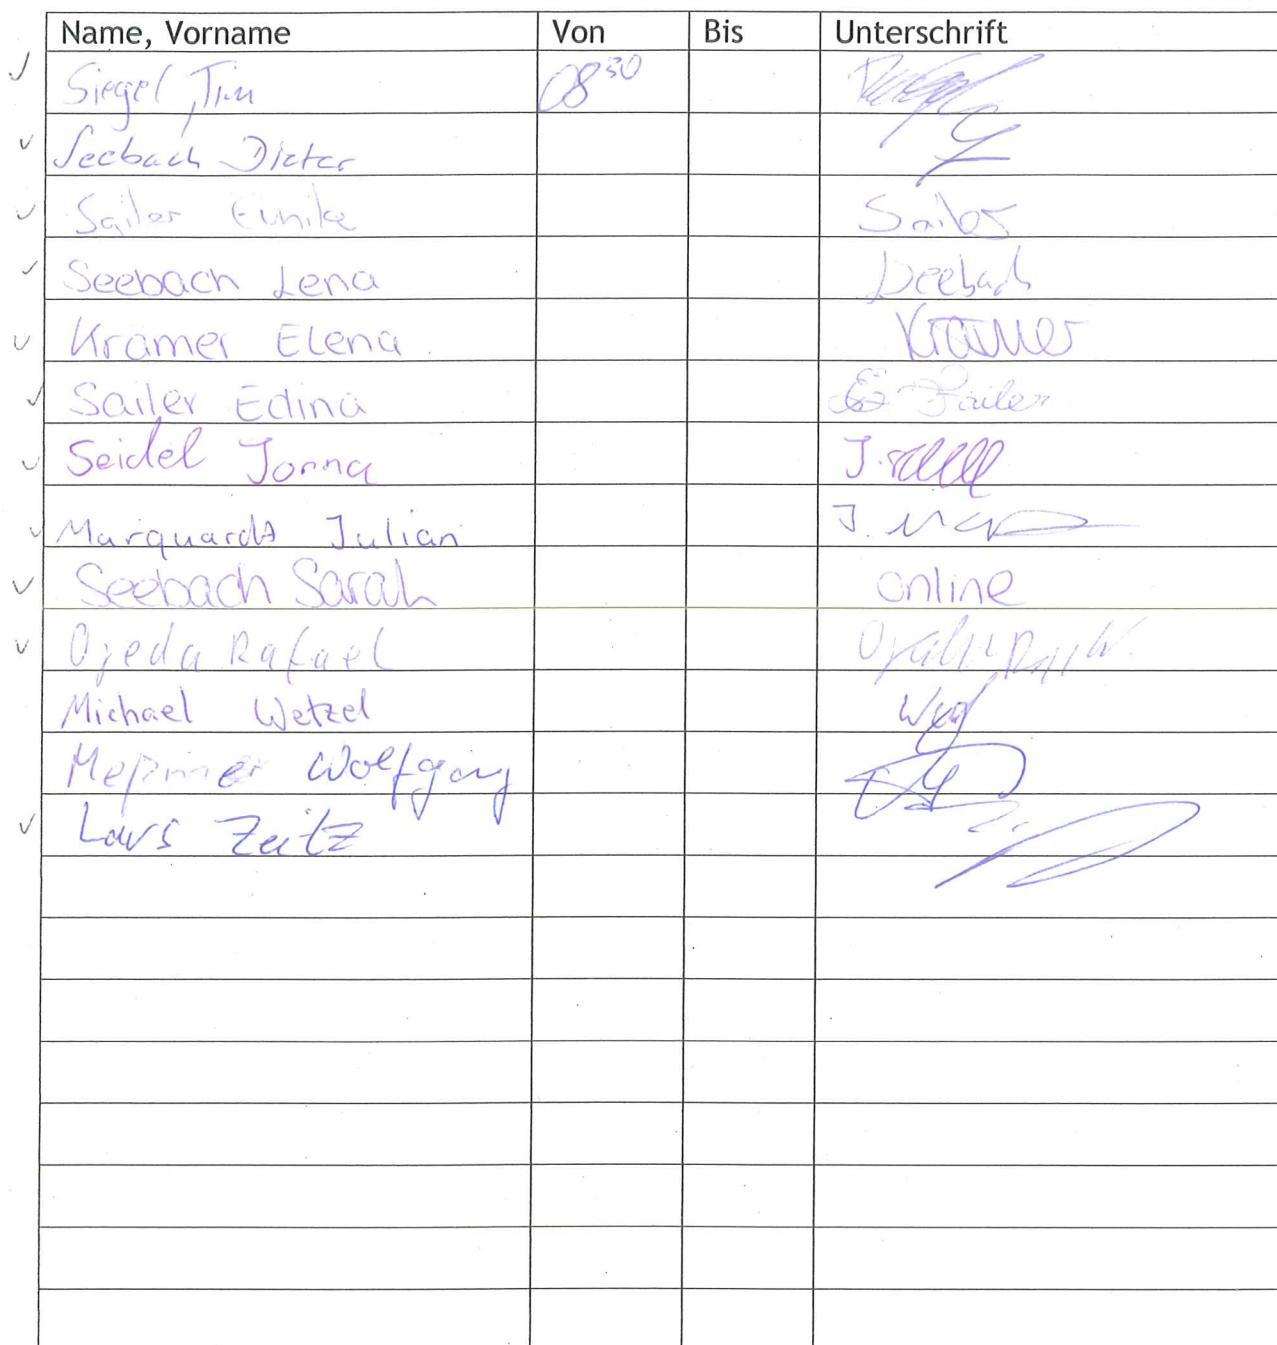 Name, Vorname Von Bis Unterschrift
Siegel, Tim 08 30
Seebach Dieter
Sailer Eunike Sailer
Seebach Lena Seebach
Krämer Elena Krämer
Sailer Edina E. Sailer
Seidel Jonna J. Seidel
Marquardt Julian J.
Seebach Sarah online
Ojeda Rafael
Michael Wetzel
Meßmer Wolfgang
Lars Zeitz